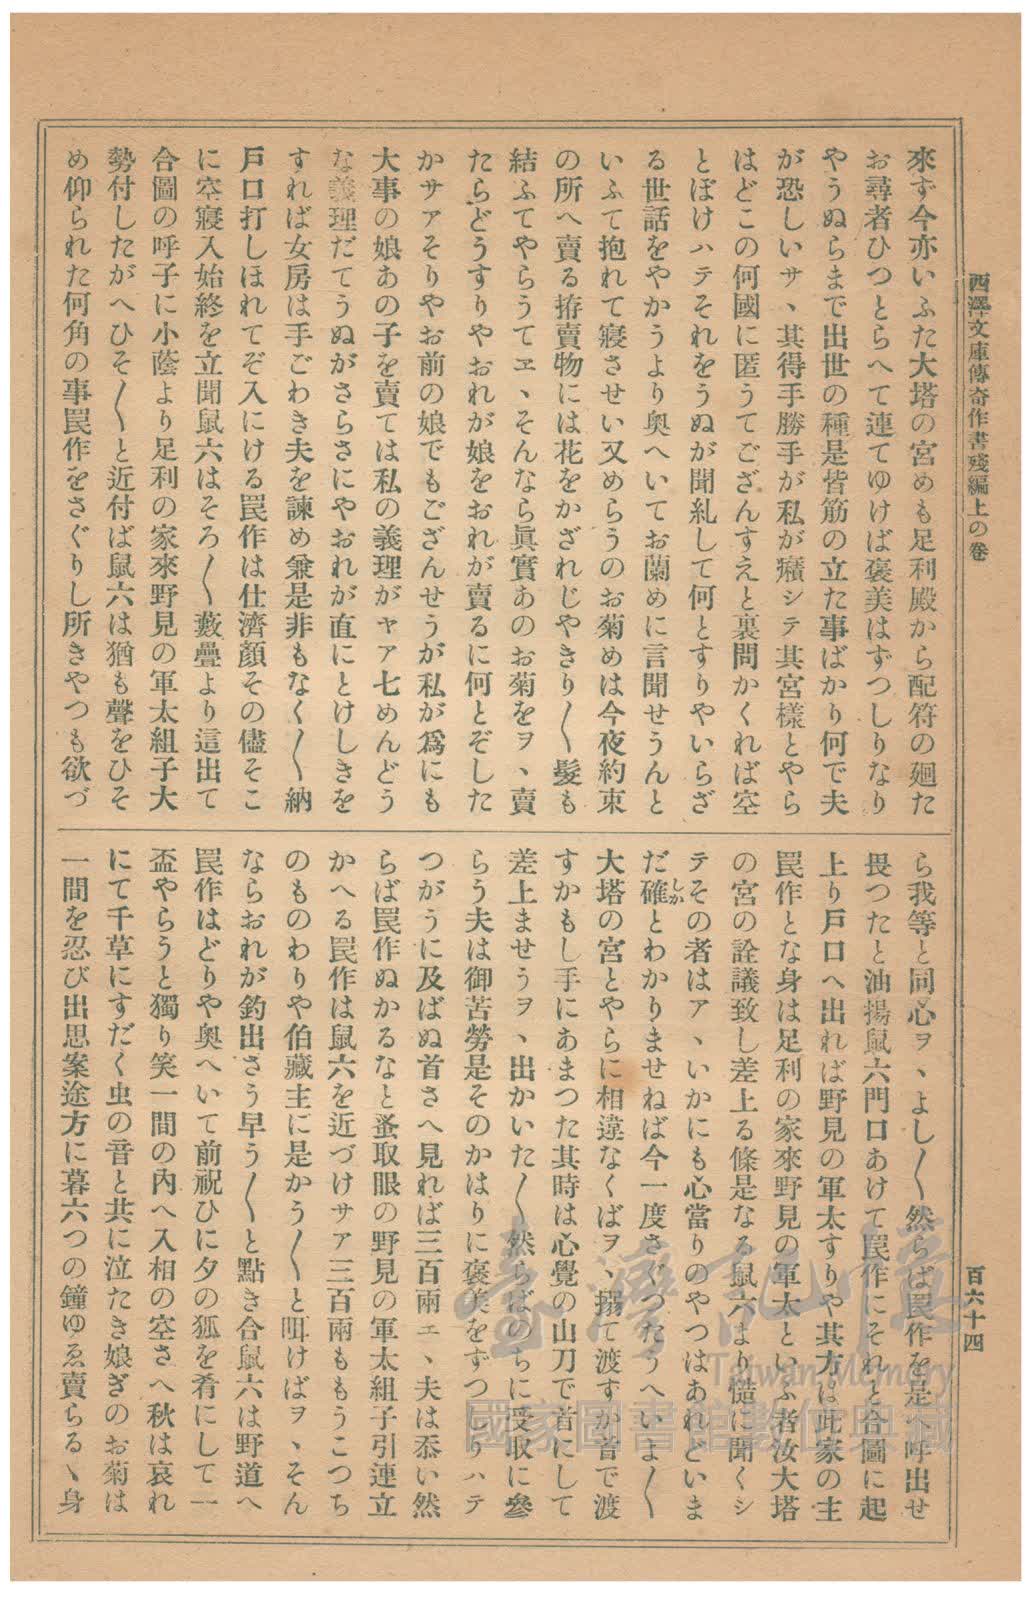 西澤文庫傳奇作書殘編上の卷
百六十四
來ず今亦いふた大塔の宮めも足利殿から配符の廻た
お尋者ひつとらへて連てゆけば褒美はずつしりなり
やうぬらまで出世の種是皆筋の立た事ばかり何で夫
が恐しいサヽ其得手勝手が私が癪シテ其宮樣とやら
はどこの何國に匿うてござんすえと裏問かくれば空
とぼけハテそれをうぬが聞糺して何とすりやいらざ
る世話をやかうより奧へいてお蘭めに言聞せうんと
いふて抱れて寢させい又めらうのお菊めは今夜約束
の所へ賣る拵賣物には花をかざれじやきり〳〵髮も
結ふてやらうてヱヽそんなら眞實あのお菊をヲヽ賣
たらどうすりやおれが娘をおれが賣るに何とぞした
かサアそりやお前の娘でもござんせうが私が爲にも
大事の娘あの子を賣ては私の義理がヤア七めんどう
な義理だてうぬがさらさにやおれが直にとけしきを
すれば女房は手ごわき夫を諫め兼是非もなく〳〵納
戸口打しほれてぞ入にける罠作は仕濟顏その儘そこ
に空寢入始終を立聞鼠六はそろ〳〵藪疊より這出て
合圖の呼子に小蔭より足利の家來野見の軍太組子大
勢付したがへひそ〳〵と近付ば鼠六は猶も聲をひそ
め仰られた何角の事罠作をさぐりし所きやつも欲づ
ら我等と同心ヲヽよし〳〵然らば罠作を是へ呼出せ
畏つたと油揚鼠六門口あけて罠作にそれと合圖に起
上り戸口へ出れば野見の軍太すりや其方は此家の主
罠作とな身は足利の家來野見の軍太といふ者汝大塔
の宮の詮議致し差上る條是なる鼠六より慥に聞くシ
テその者はアヽいかにも心當りのやつはあれどいま
だ確とわかりませねば今一度さぐつたうへいよ〳〵
大塔の宮とやらに相違なくばヲヽ搦て渡すか首で渡
すかもし手にあまつた其時は心覺の山刀で首にして
差上ませうヲヽ出かいた〳〵然らばのちに受取に參
らう夫は御苦勞是そのかはりに褒美をずつしりハテ
つがうに及ばぬ首さへ見れば三百兩エヽ夫は忝い然
らば罠作ぬかるなと蚤取眼の野見の軍太組子引連立
かへる罠作は鼠六を近づけサア三百兩ももうこつち
のものわりや伯藏主に是かう〳〵と咡けばヲヽそん
ならおれが釣出さう早う〳〵と點き合鼠六は野道へ
罠作はどりや奧へいて前祝ひに夕の狐を肴にして一
盃やらうと獨り笑一間の內へ入相の空さへ秋は哀れ
にて千草にすだく虫の音と共に泣たき娘ぎのお菊は
一間を忍び出思案途方に暮六つの鐘ゆゑ賣らるヽ身
臺灣記憶
Taiwan Memory
國家圖書館數位典藏